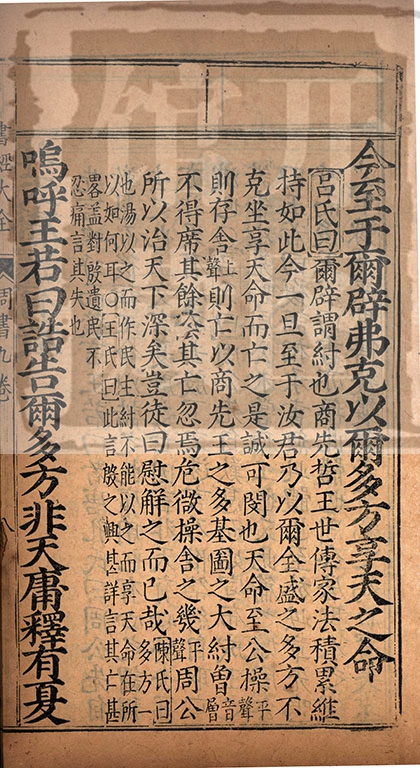 今至于爾辟弗克以爾多方享天之命
呂氏曰爾辟謂紂也商先哲王世傳家法積累維
持如此今一旦至于汝君乃以爾全盛之多方不
克坐享天命而亡之是誠可閔也天命至公操平聲
則存舍上聲則亡以商先王之多基圖之大紂曾音層
不得席其餘蔭其亡忽焉危微操舍之幾平聲周公
所以治天下深矣豈徒曰慰解之而已哉陳氏曰多方一
也湯以之而作民主紂不能以之而享天命在所
以如何耳○王氏曰此言殷之興甚詳言其亡甚
畧蓋對殷遺民不
忍痛言其失也
嗚呼王若曰誥告爾多方非天庸釋有夏
書經大全 周書九卷